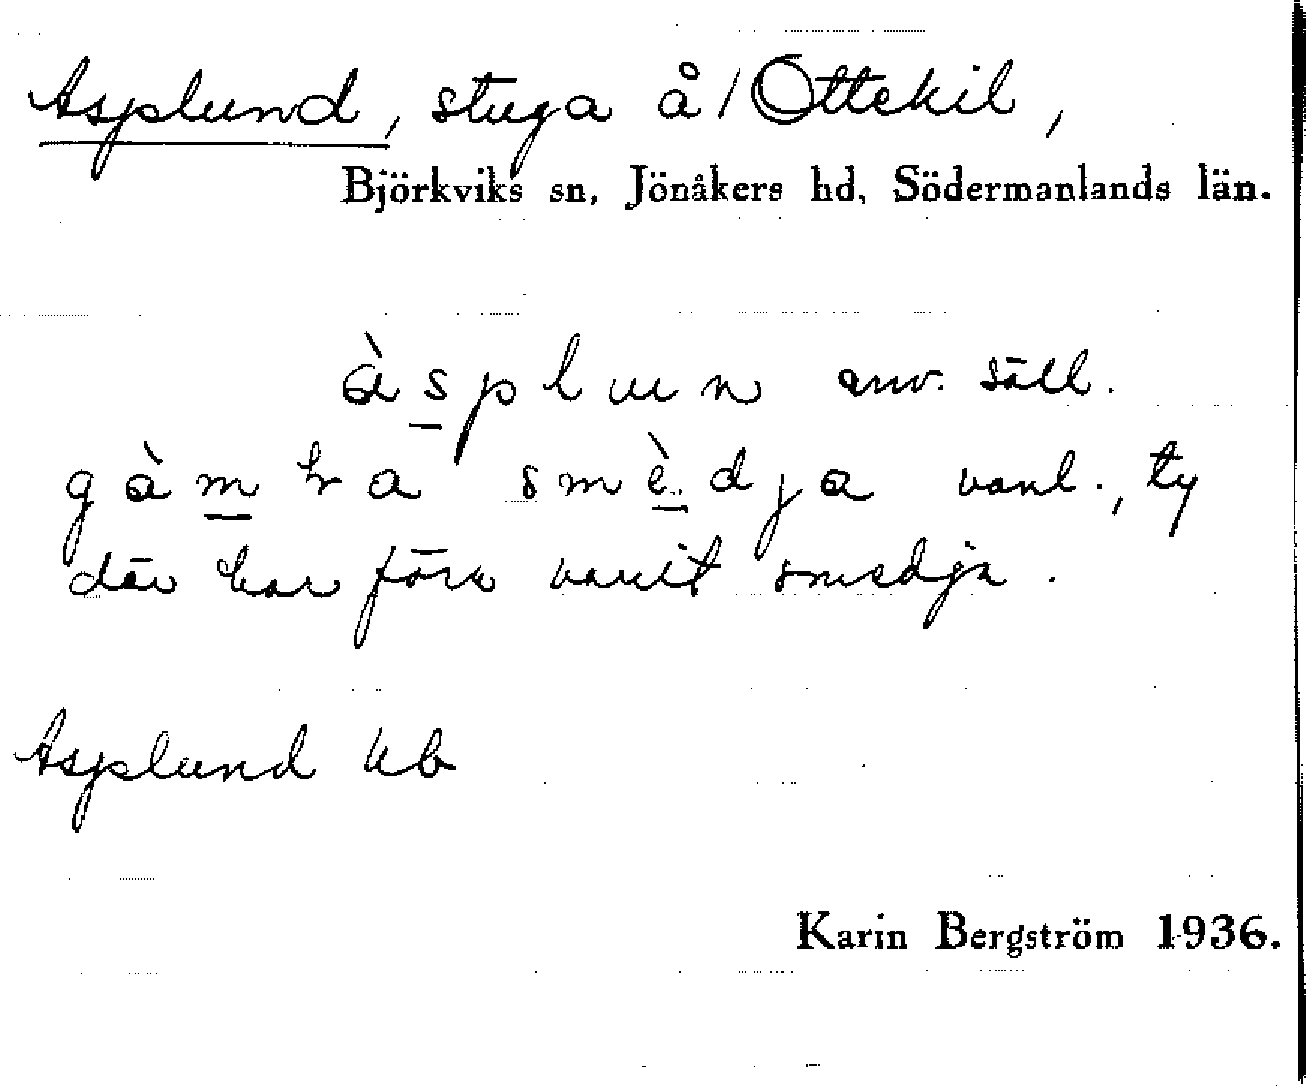 Asplund, stuga å/Ottekil,
Björkviks sn, Jönåkers hd, Södermanlands län.
àsplun anv. säll.
gàmba smèdja vanl., ty
där har förr varit smedja.
Asplund
Karin Bergström 1936.